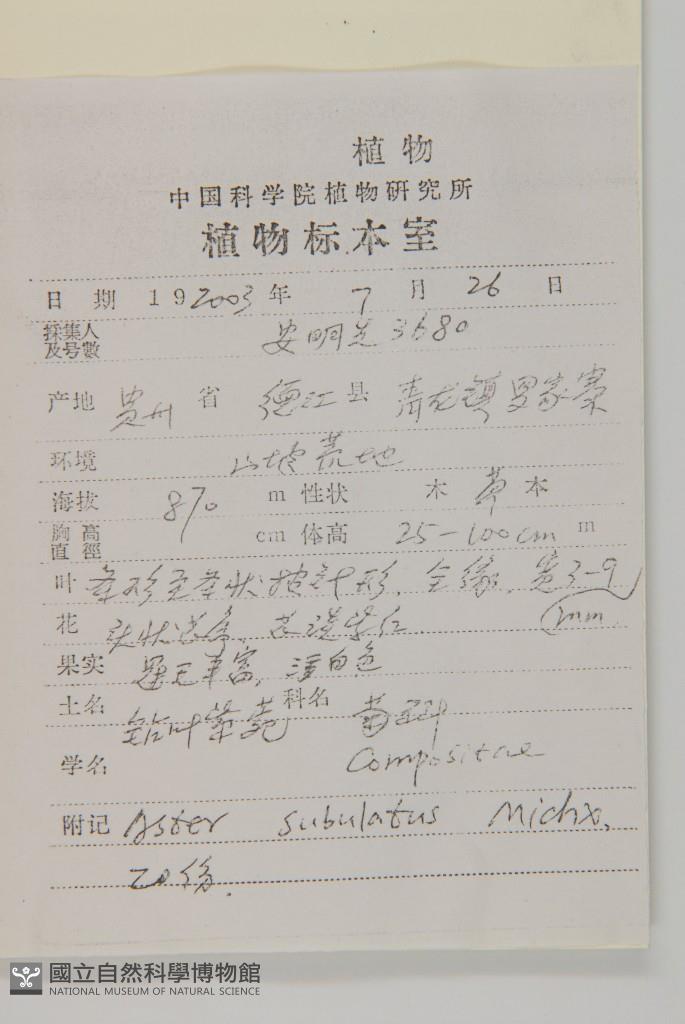 植物
中国科学院植物研究所
植物标本室
日期 19 2003 年 7 月 26 日
採集人及号數 安明先 3680
产地 贵州 省 德江 县 青龙镇 罗家寨
环境 山坡荒地
海拔 870 m 性状 木 草 本
胸高直徑 cm 体高 25-100cm m
叶 条形至条状披针形, 全缘, 宽3-9
花 头状花序, 花淡紫红 mm
果实 冠毛丰富, 淡白色
土名 钻叶紫菀 科名 菊科
学名 Compositae
附记 Aster subulatus Michx.
20份.
國立自然科學博物館
NATIONAL MUSEUM OF NATURAL SCIENCE